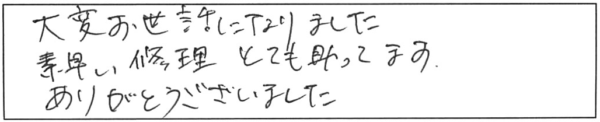 大変お世話になりました
素早い修理 とても助ってます.
ありがとうございました